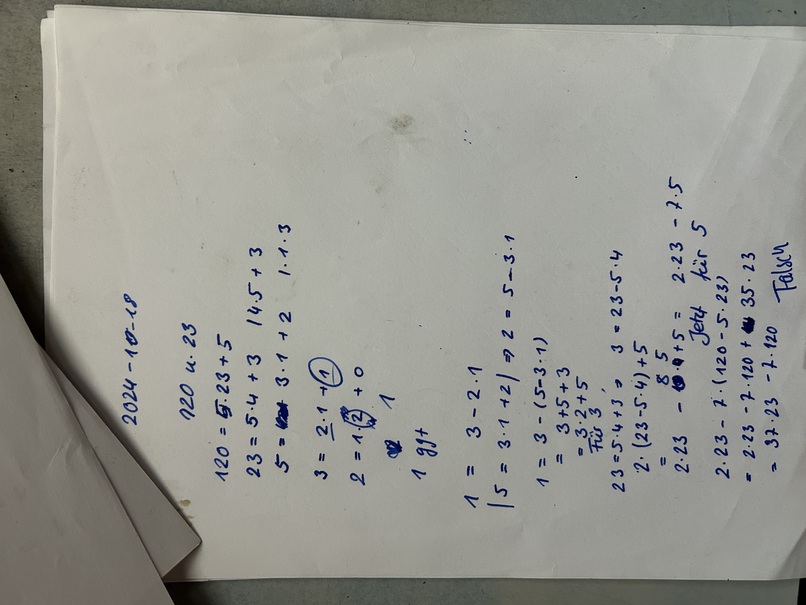 2024-10-18
120 u. 23
120 = 5·23+5
23 = 5·4+3 14·5+3
5 = 3·1+2 1·1·3
3 = 2·1+1
2 = 1·2+0
1
1 ggt
1 = 3-2·1
15 = 3·1+2 | ⇒ 2 = 5-3·1
1 = 3-(5-3·1)
= 3+5+3
= 3·2+5
Für 3,
23=5·4+3, 3=23-5·4
2·(23-5·4)+5
=
2·23 - 8·5 +5 = 2·23 -7·5
Jetzt für 5
2·23-7·(120-5·23)
= 2·23-7·120+ 35·23
= 37·23-7·120 Falsch